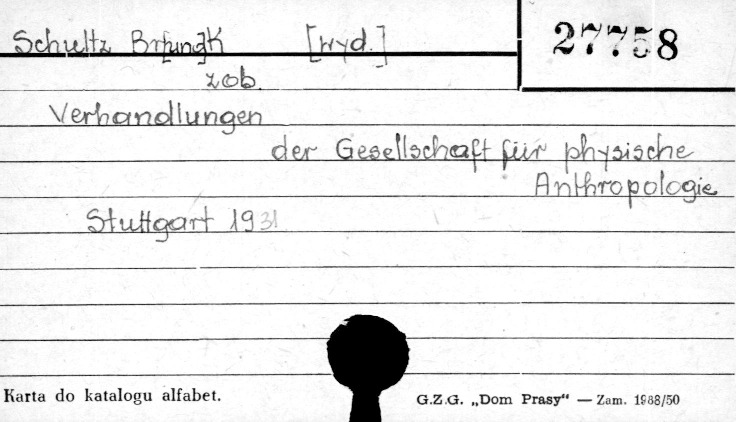 Schultz Br[un]k [wyd.]
27758
zob.
Verhandlungen
der Gesellschaft für physische
Anthropologie
Stuttgart 1931
Karta do katalogu alfabet.
G.Z.G. „Dom Prasy“ — Zam. 1988/50